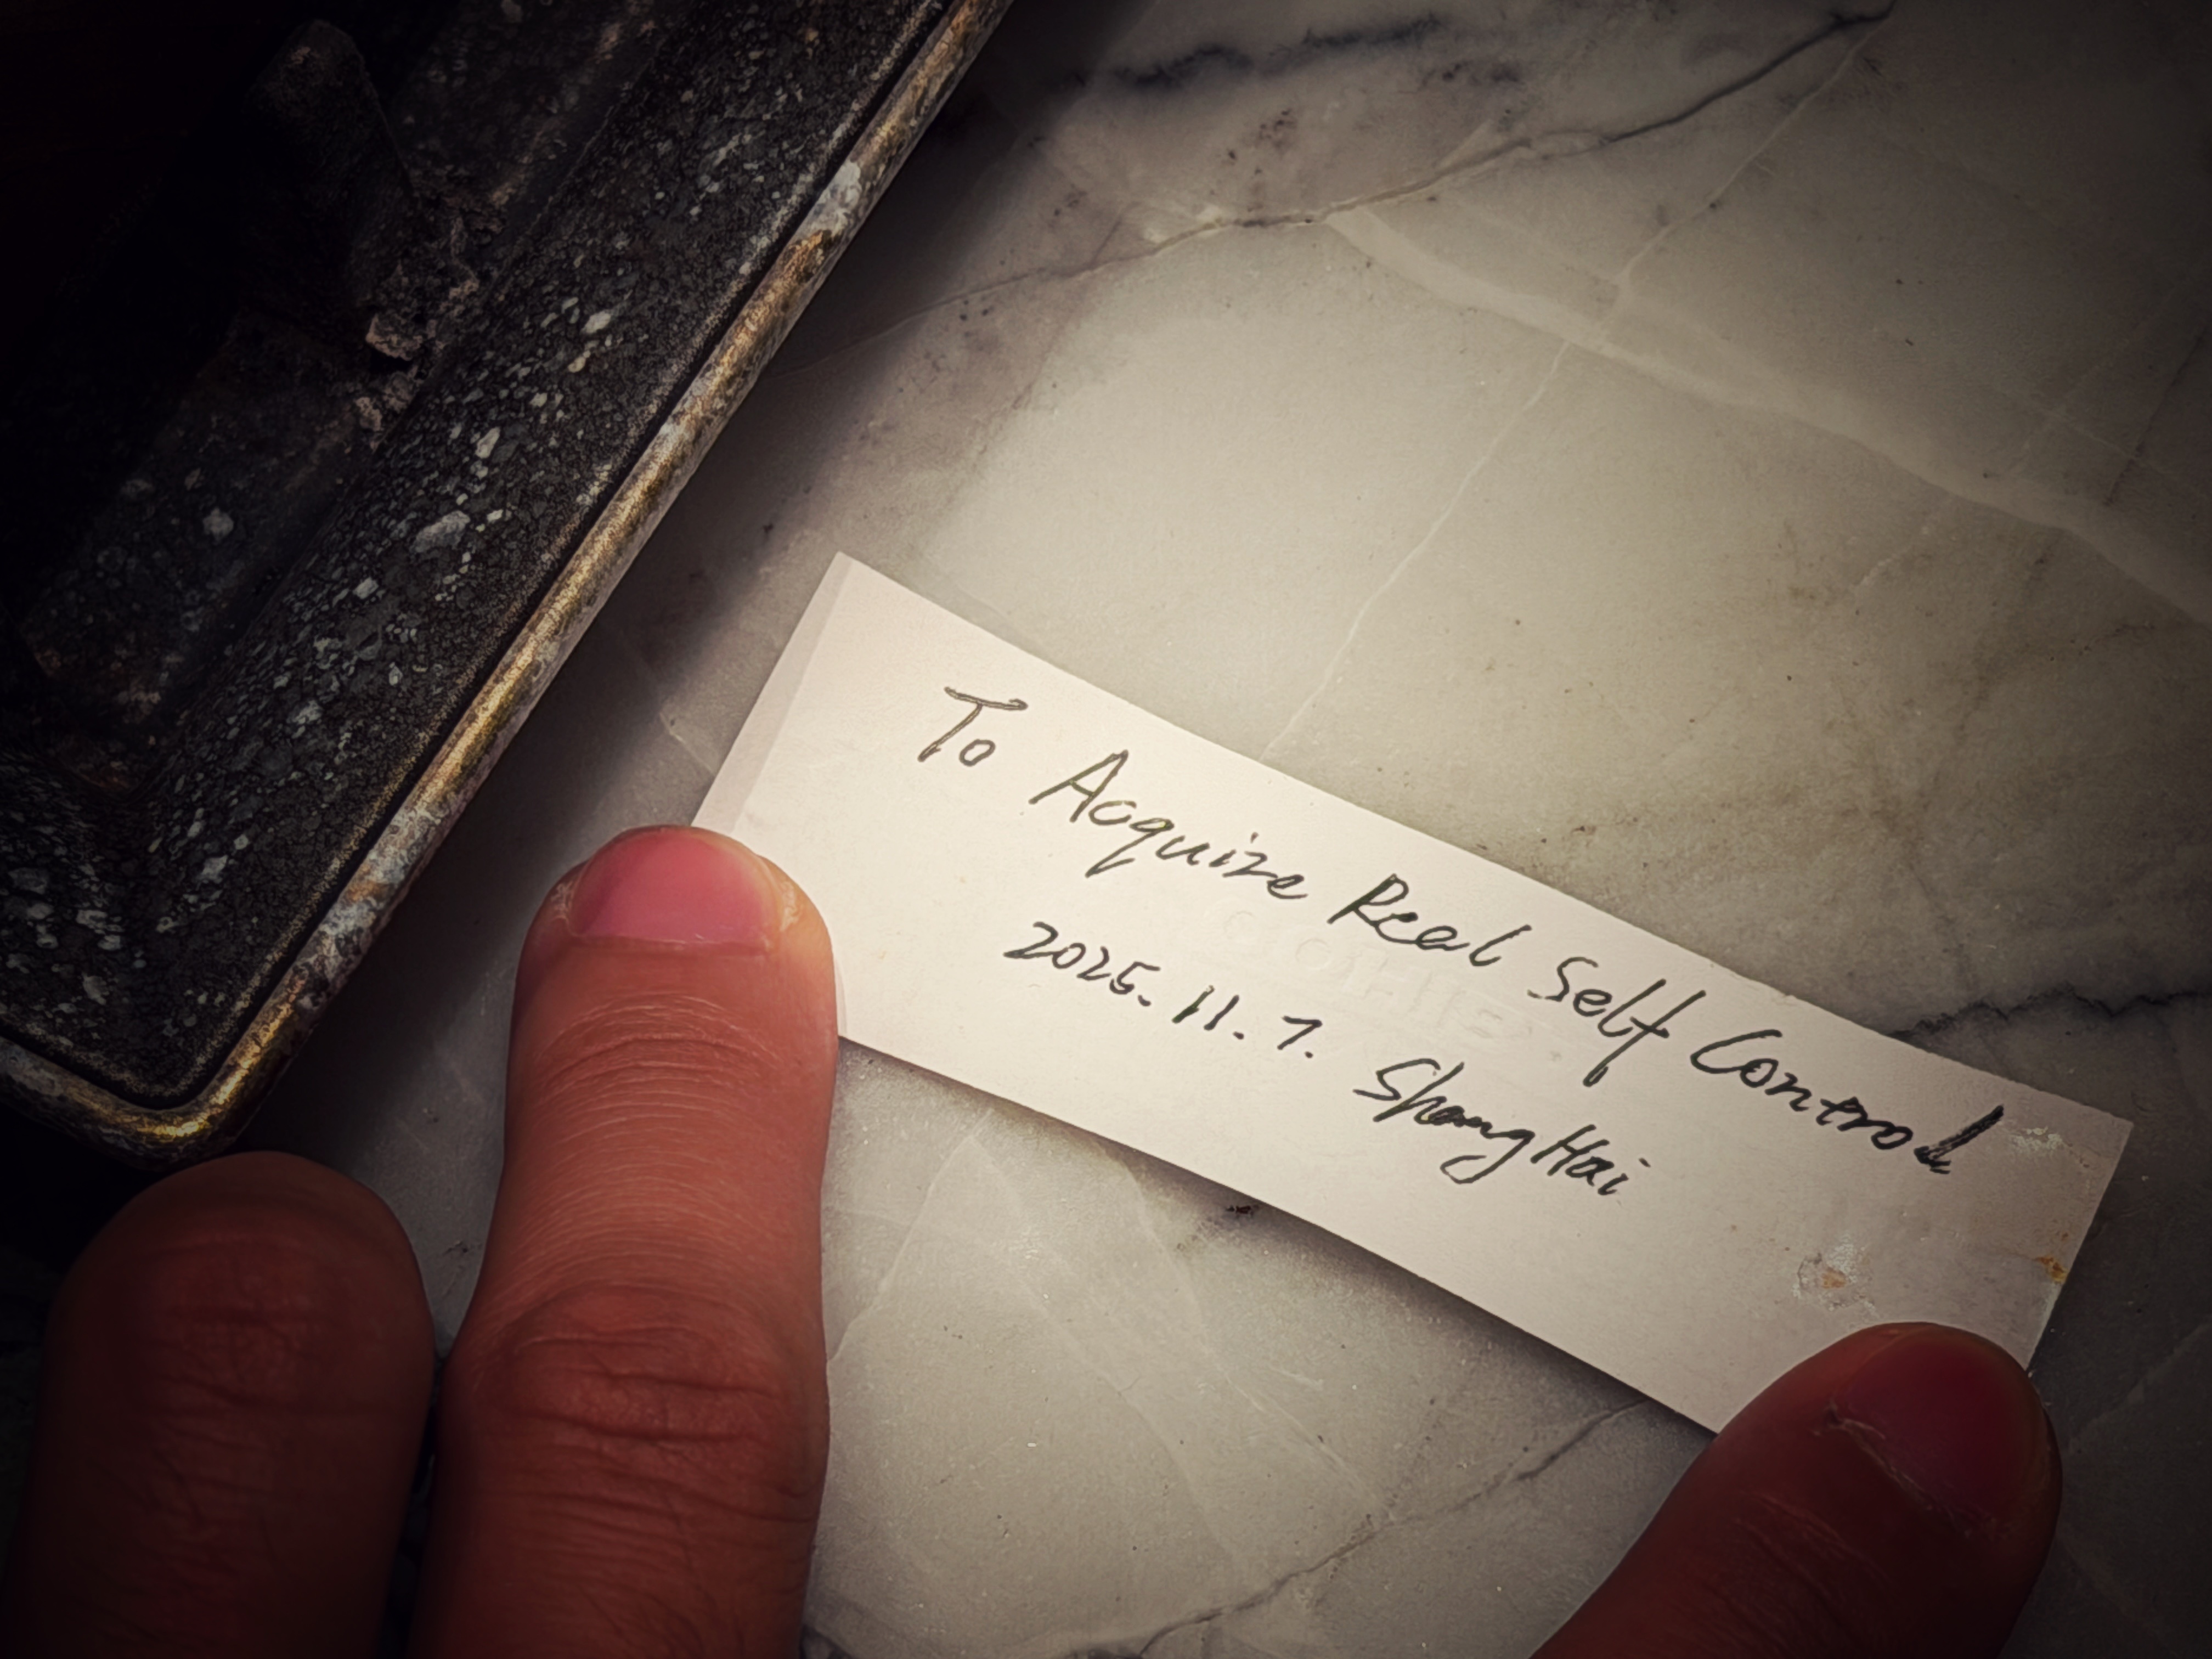 To Acquire Real Self Control
2025. 11. 7. ShangHai